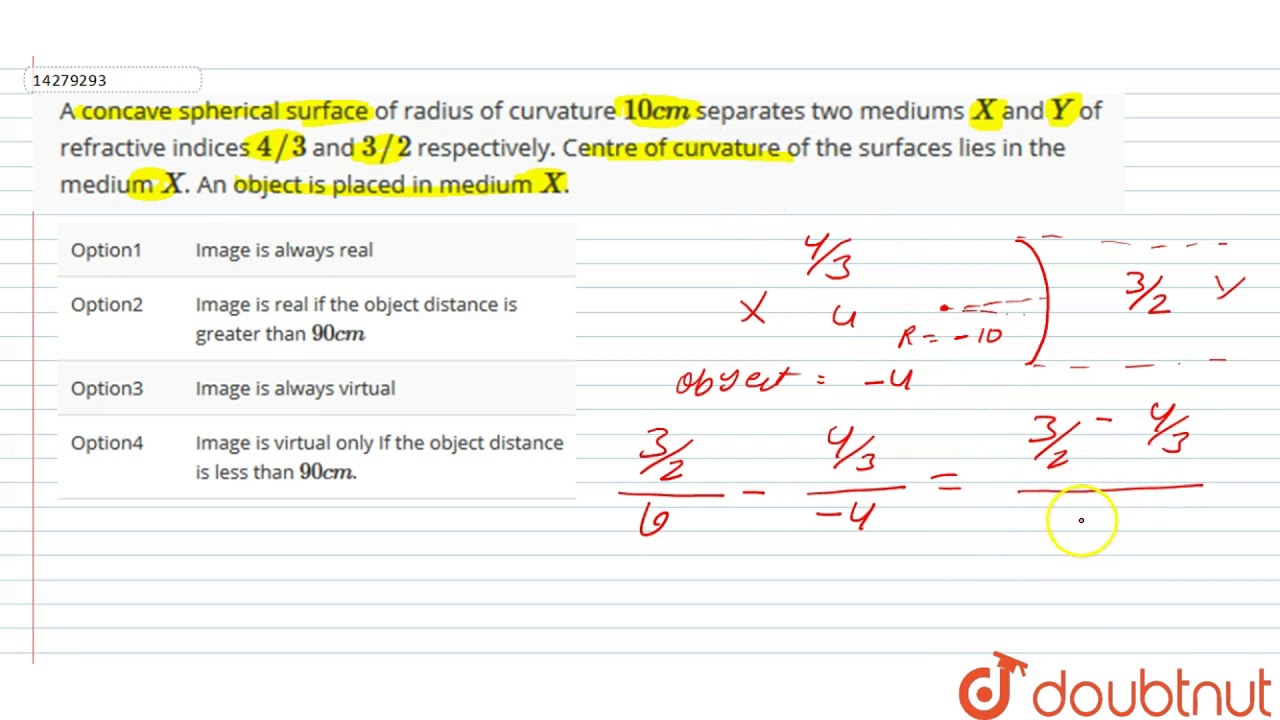 14279293
A concave spherical surface of radius of curvature 10cm separates two mediums X and Y of
refractive indices 4/3 and 3/2 respectively. Centre of curvature of the surfaces lies in the
medium X. An object is placed in medium X.
Option1 Image is always real
Option2 Image is real if the object distance is
greater than 90cm
Option3 Image is always virtual
Option4 Image is virtual only If the object distance
is less than 90cm.
4/3
X u
3/2 Y
R = -10
object = -u
3/2 / v - 4/3 / -u = 3/2 - 4/3
doubtnut